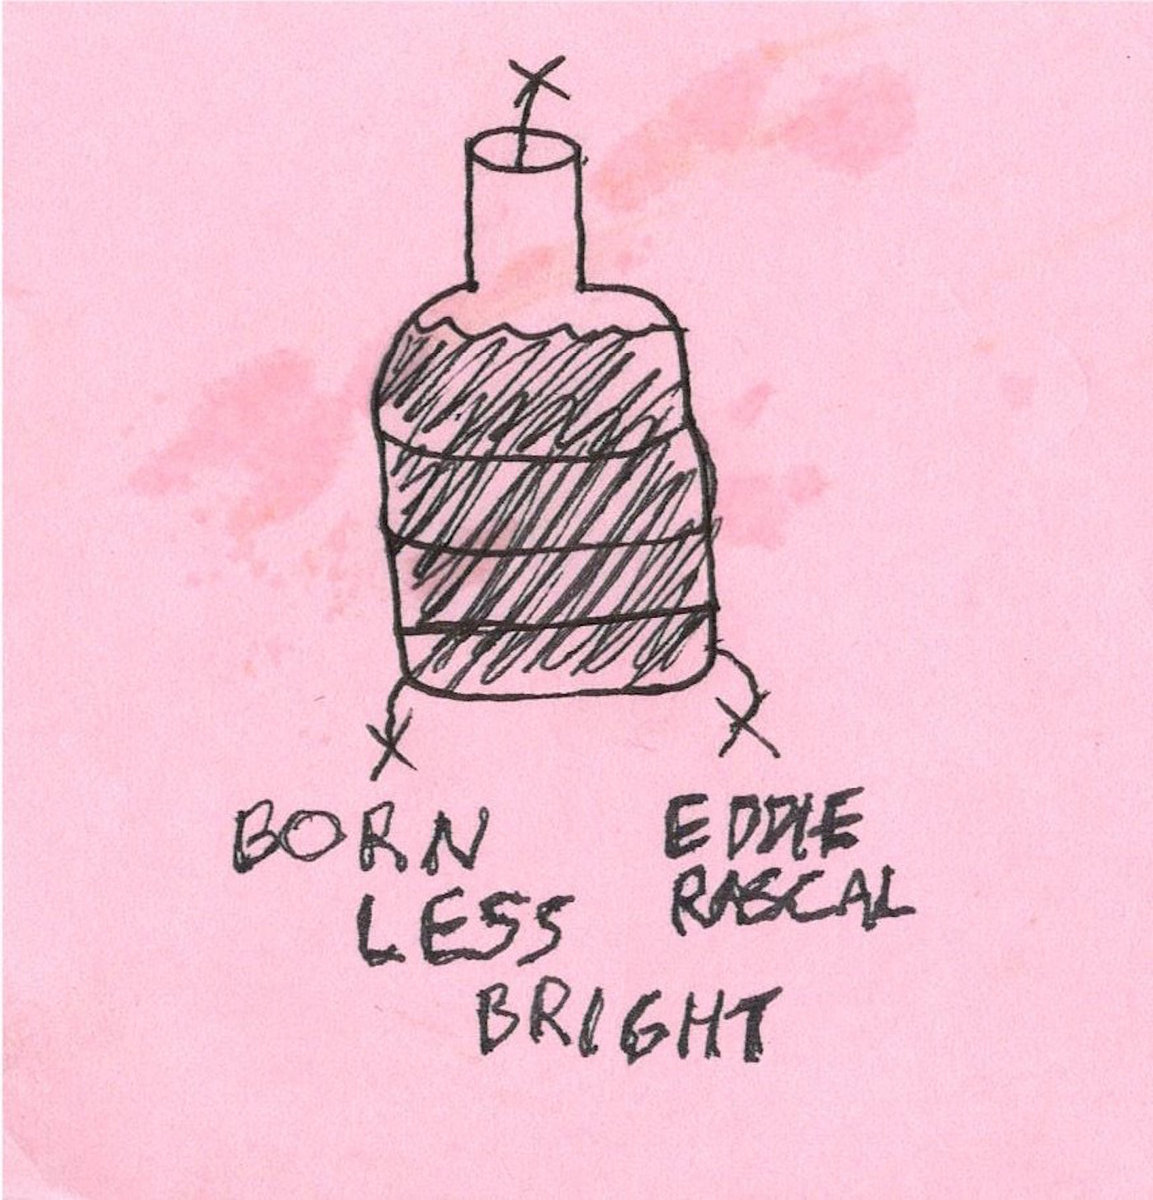 BORN
LESS
BRIGHT
EDDIE
RASCAL